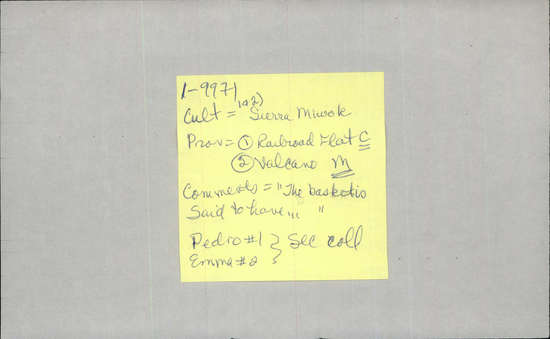 1-9971
Cult = 1+2) Sierra Miwok
Prov = ① Railroad Flat C
② Volcano M
Comments = "The basket is
Said to have,,, "
Pedro #1 } See coll
Emma #2